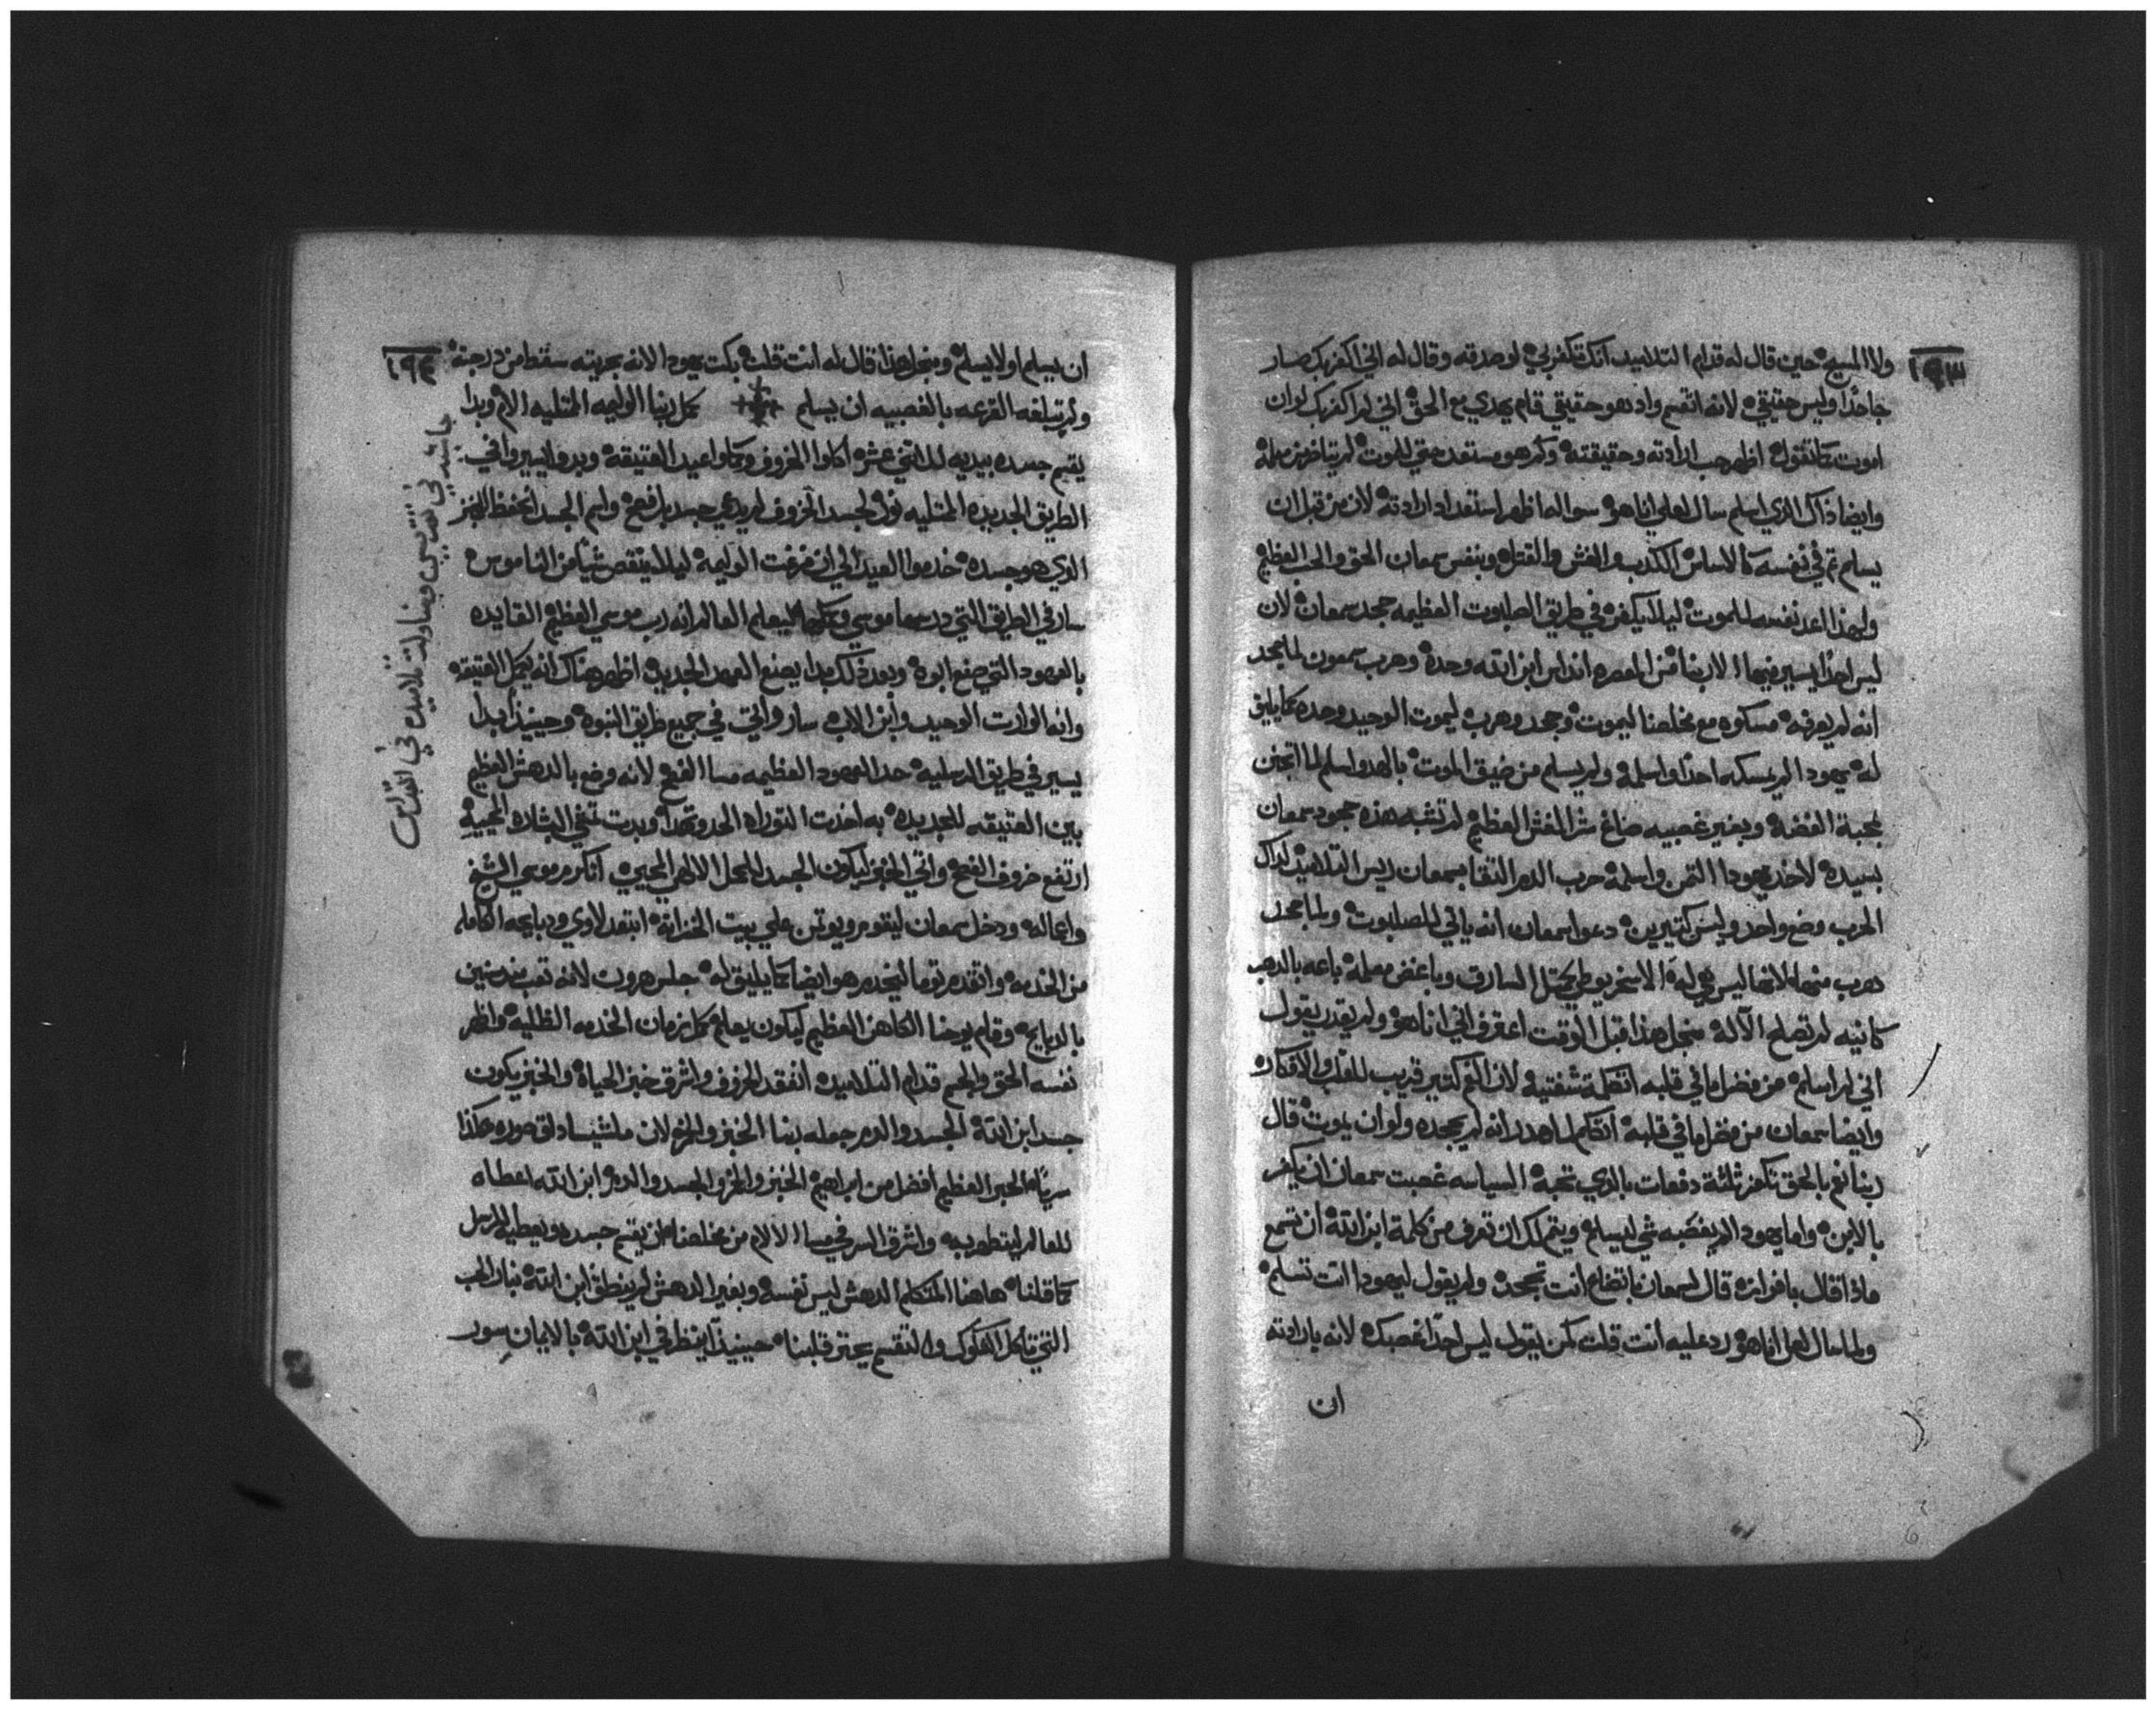 ١٩٣
ولا المسيح حين قال له قدام التلاميد انك تكفر بي لو صدقه وقال له اني اكفر بك صار
جاحدا وليس حقيقي لانه اتقسم واد هو حقيقي قام يهدي مع الحق اني لم اكفر بك لو ان
اموت كما تقول اظهر حب ارادته وحقيقته وكم هو مستعد حتي للموت لم يتاخر من معلمه
وايضا ذاك الذي اسلم سال لعلي انا هو سواله اظهر استعداد ارادته لان من قبل ان
يسلم تم في نفسه كالاساس الكدب والغش والقتله وبنفس سمعان الحق والحب العظيم
ولهذا اعد نفسه للموت ليلا يكفر في طريق الصلبوت العظيمه جحد سمعان لان
ليس احدا يسير فيها الا ربنا من المعصره انداس ابن الله وحده وهرب سمعون لما جحد
انه لم يعرفه مسكوه مع مخلصنا ليموت وجحد وهرب ليموت الوحيد وحده كما يليق
له يهودا لم يمسكه احدا واسلمه ولم يسلم من ضيق الموت بالهدو اسلم لما اتجنن
بمحبة الفضة وبغير غصبيه صاغ شر الغش العظيم لم تشبه هذه جحود سمعان
بسيده لاخد يهودا التمن واسلمه حرب الدم التقا بسمعان ريس التلاميد لداك
الحرب وضع واحد وليس كتيرين دعوا سمعان انه ياتي للصلبوت ولما جحد
هرب منها لانها ليس هي له الاسخريوطي يحتل السارق وباغض معلمه باعه بالدهب
كانيه لم تصلح الآلة منجل هذا قبل الوقت اعترف اني انا هو ولم يقدر يقول
اني لم اسلم من فضل ما في قلبه اتكلمة شفتيه لان الفم كتير قريب للقلب والافكار
وايضا سمعان من فضل ما في قلبه اتكلم لما هدر انه لم يجحده ولو ان يموت قال
ربنا نعم بالحق تكفر ثلثة دفعات بالذي تحبه السياسه غصبت سمعان ان يكفر
بالابن واما يهودا لم يغصبه شي ليسلم ويتم لك ان تعرف من كلمة ابن الله ان تسمع
ماذا قال بافرازه قال لسمعان باتضاع انت تجحد ولم يقول ليهودا انت تسلم
ولما سال لعل انا هو رد عليه انت قلت كمن يقول ليس احدا غصبك لانه بارادته
ان
١٩٤
ان يسلم او لا يسلم ومنجل هذا قال له انت قلت بكت يهودا لانه بحريته سقط من درجته
ولم تبلغه القرعه بالغصبيه ان يسلم كمل ربنا الوليمه المتليه الام وبدا
يقسم جسده بيديه للاتني عشره اكلوا الخروف وكملوا عيد العتيقه وبدوا يسيروا في
الطريق الجديده المتليه نور لجسد الخروف لم يدعي جسد بل فصح واسم الجسد انحفظ للخبز
الذي هو جسده خدموا العيد الي ان فرغت الوليمة ليلا ينقص شيا من الناموس
سار في الطريق التي درسها موسي وكملها ليعلم العالم انه رب موسي العظيم القايده
بالعهود التي صنع ابوه وبعد ذلك بدا يصنع العهد الجديد اظهر هناك انه يكمل العتيقه
وانه الوارت الوحيد وابن الاب سار واتي في جميع طرايق النبوه وحينيذ ابدا
يسير في طريق الرسليه حد العهود العظيمه مسا الفصح لانه وضع بالدهش العظيم
بين العتيقه للجديده به اخدت التوراه الحد وتهدا وبدت تنمي البشاره المحييه
ارتفع خروف الفصح واتي الخبز ليكون الجسد للمحل الالهي المحيي اتكرم موسي الشيخ
واعماله ودخل سمعان ليقوم ويوتمن علي بيت الخزانة ابتعد لاوي ودبايحه الكامله
من الخدمه واتقدم توما ليخدم هو ايضا كما يليق له جلس هرون لانه تعب مند سنين
بالدبايح وقام يوحنا الكاهن العظيم ليكون يعلم كمل زمان الخدمه الظليه واظهر
نفسه الحق والجسم قدام التلاميده اتفقد الخروف واشرق خبز الحياة والخبز يكون
جسد ابن الله الجسد والدم جعله ربنا الخبز والخمر لان ملشيساداق صوره هكدا
سريا الحبر العظيم افضل من ابراهيم الخبز والخمر والجسد والدم ابن الله اعطاه
للعالم ليتطهر به واشرق السر في مسا الالام من مخلصنا ان يقسم جسده ويعطيه للرسل
كما قلنا هاهنا المتكلم الدهش ليس نفسه وبغير الدهش لم ينطق ابن الله بنار الحب
التي تاكل الشكوك والتقسم يحترق قلبنا حينيذ اينظر في ابن الله بالايمان سور
حاشيه في تقديس ومناولت تلاميده في القداس